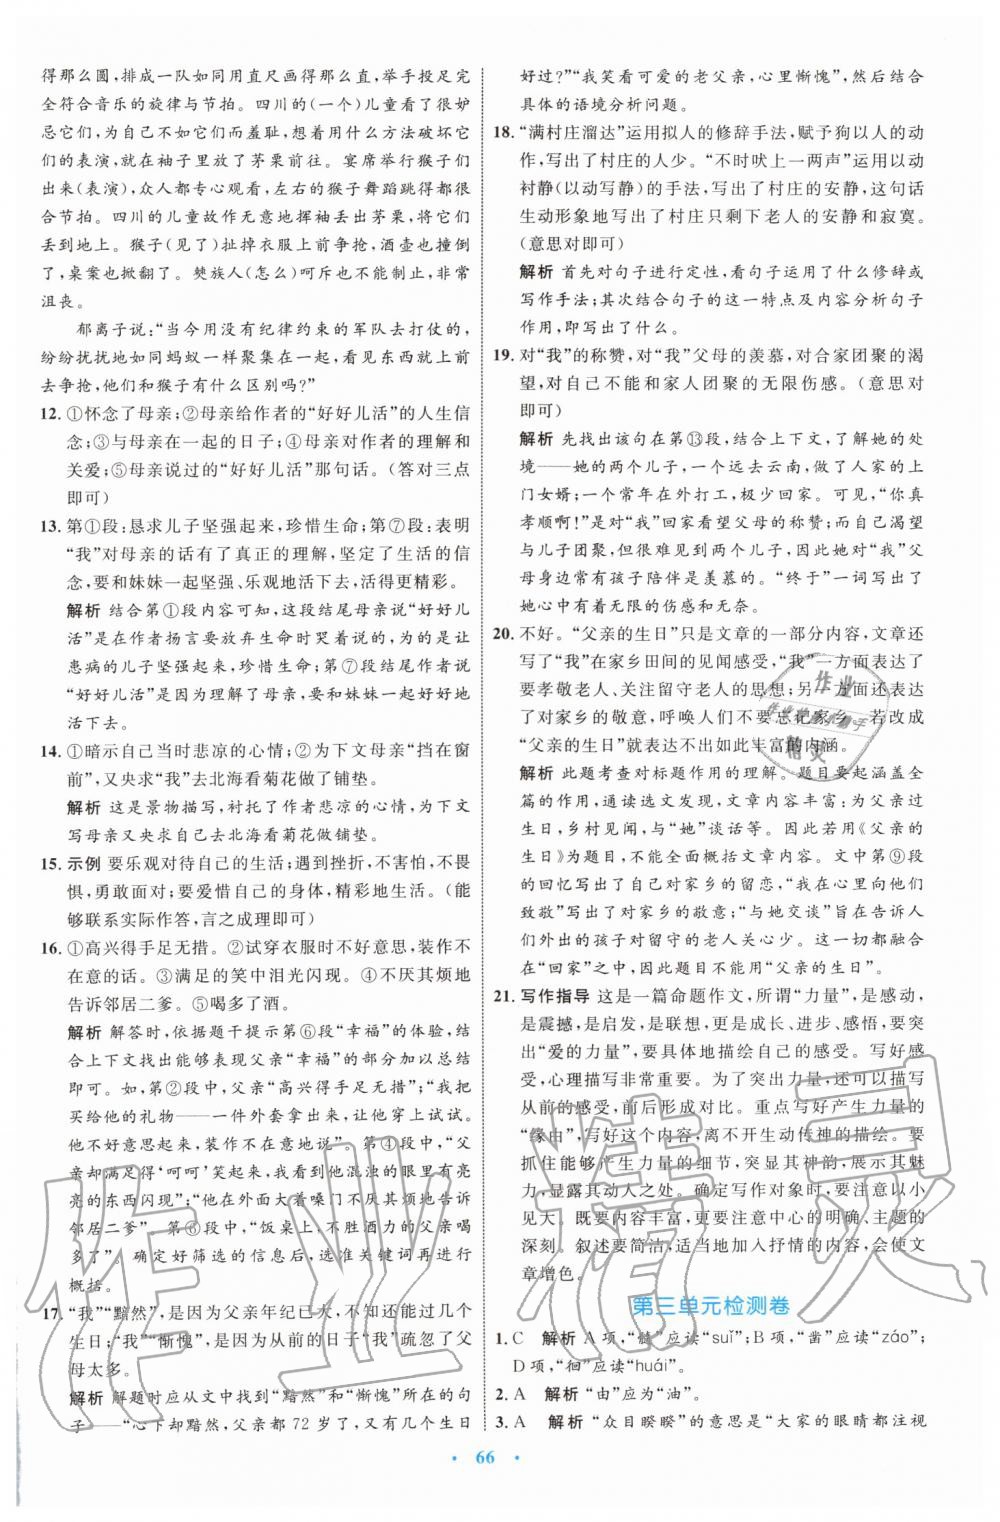 得那么圆,排成一队如同用直尺画得那么直,举手投足完
全符合音乐的旋律与节拍。四川的(一个)儿童看了很妒
忌它们,为自己不如它们而羞耻,想着用什么方法破坏它
们的表演,就在袖子里放了茅栗前往。宴席举行猴子们
出来(表演),众人都专心观看,左右的猴子舞蹈跳得都很
合节拍。四川的儿童故作无意地挥袖丢出了茅栗,将它们
丢到地上。猴子(见了)扯掉衣服上前争抢,酒壶也撞倒
了,桌案也掀翻了。僰族人(怎么)呵斥也不能制止,非常
沮丧。
郁离子说:“当今用没有纪律约束的军队去打仗的,
纷纷扰扰地如同蚂蚁一样聚集在一起,看见东西就上前
去争抢,他们和猴子有什么区别吗?”
12. ①怀念了母亲;②母亲给作者的“好好儿活”的人生信
念;③与母亲在一起的日子;④母亲对作者的理解和
关爱;⑤母亲说过的“好好儿活”那句话。(答对三点
即可)
13. 第①段:恳求儿子坚强起来,珍惜生命;第⑦段:表明
“我”对母亲的话有了真正的理解,坚定了生活的信
念,要和妹妹一起坚强、乐观地活下去,活得更精彩。
解析 结合第①段内容可知,这段结尾母亲说“好好儿
活”是在作者扬言要放弃生命时哭着说的,为的是让
患病的儿子坚强起来,珍惜生命;第⑦段结尾母亲说
“好好儿活”则写出了理解了母亲,要和妹妹一起好好
活下去。
14. ①暗示自己当时悲凉的心情;②为下文母亲“挡在窗
前”,又央求“我”去北海看菊花做了铺垫。
解析 这是景物描写,衬托了作者悲凉的心情,为下文
写母亲又央求自己去北海看菊花做铺垫。
15. 示例 要乐观对待自己的生活;遇到挫折,不害怕,不畏
惧,勇敢面对;要爱惜自己的身体,精彩地生活。(能
够联系实际作答,言之成理即可)
16. ①高兴得手足无措。②试穿衣服时不好意思,装作不
在意的话。③满足的笑中泪光闪现。④不厌其烦地
告诉邻居二爹。⑤喝多了酒。
解析 解答时,依据题干提示第⑥段“幸福”的体验,结
合上下文找出能够表现父亲“幸福”的部分加以总结
即可。如第②段中,父亲“高兴得手足无措”;“我把
买给他的礼物——一件外套拿出来,让他穿上试试。
他不好意思起来,装作不在意地说”。第④段中,“父
亲却满足得‘呵呵’笑起来,我看到他混浊的眼里有亮
亮的东西闪现”;“他在外面大着嗓门不厌其烦地告诉
邻居二爹”。第⑥段中,“饭桌上,不胜酒力的父亲喝
多了”。确定好筛选的信息后,选准关键词再进行
概括。
17. “我”“黯然”,是因为父亲年纪已大,不知还能过几个
生日;“我”“惭愧”,是因为从前的日子“我”疏忽了父
母太多。
解析 解题时应从文中找到“黯然”和“惭愧”所在的句
子——“心下却黯然,父亲都72岁了,又有几个生日
好过?”“我笑看可爱的老父亲,心里惭愧”,然后结合
具体的语境分析问题。
18. “满村庄溜达”运用拟人的修辞手法,赋予狗以人的动
作,写出了村庄的人少。“不时吠上一两声”运用以动
衬静(以动写静)的手法,写出了村庄的安静,这句话
生动形象地写出了村庄只剩下老人的安静和寂寞。
(意思对即可)
解析 首先对句子进行定性,看句子运用了什么修辞或
写作手法;其次结合句子的这一特点及内容分析句子
作用,即写出了什么。
19. 对“我”的称赞,对“我”父母的羡慕,对合家团聚的渴
望,对自己不能和家人团聚的无限伤感。(意思对
即可)
解析 先找出该句在第⑬段,结合上下文,了解她的处
境——她的两个儿子,一个远去云南,做了人家的上
门女婿;一个常年在外打工,极少回家。因此,“你真
孝顺啊!”是对“我”回家看望父母的称赞;自己渴望
与儿子团聚,但很难与两个儿子团聚,因此她对“我”父
母身边有孩子陪伴是羡慕的。“终于”一词写出了
她心中有着无限的伤感和无奈。
20. 不好。“父亲的生日”只是文章的一部分内容,文章还
写了“我”在家乡田间的见闻感受,“我”一方面表达了
要孝敬老人、关注留守老人的思想;另一方面还表达
了对家乡的敬意,呼唤人们不要忘记家乡。若改成
“父亲的生日”就表达不出如此丰富的内涵。
解析 此题考查对标题作用的理解。题目要起涵盖全
篇的作用,通读选文发现,文章内容丰富:为父亲过
生日,乡村见闻,与“她”谈话等。因此若用《父亲的
生日》为题目,不能全面概括文章内容。文中第⑨段
的回忆写出了对家乡的留恋,“在心里向他们
致敬”写出了对家乡的尊敬,“与她交谈”旨在告诉人
们外出的孩子对留守的老人关心少。这一切都融合
在“回家”之中,因此题目不能用“父亲的生日”。
21. 写作指导 这是一篇命题作文,所谓“力量”,是感动,
是震撼,是启发,是联想,更是成长、进步、感悟,要突
出“爱的力量”,要具体地描绘自己的感受。写好感
受,心理描写非常重要。为了突出力量,还可描写
从前的感受,前后形成对比。重点写好产生力量的
“缘由”,写好这个内容,离不开生动传神的描绘。要
抓住能够产生力量的细节,突出其神韵,展示其魅
力,显露其动人之处。确定写作对象时,要注意以小
见大。既要内容丰富,更要注意中心的明确、主题的
深刻。叙述要简洁,适当地加入抒情的内容,会使文
章增色。
第三单元检测卷
1. C 解析 A项,“髓”应读“suǐ”;B项,“凿”应读“záo”;
D项,“徊”应读“huái”。
2. A 解析 “由”应为“油”。
3. A 解析 “众目睽睽”的意思是“大家的眼睛都注视
· 66 ·
作业精灵